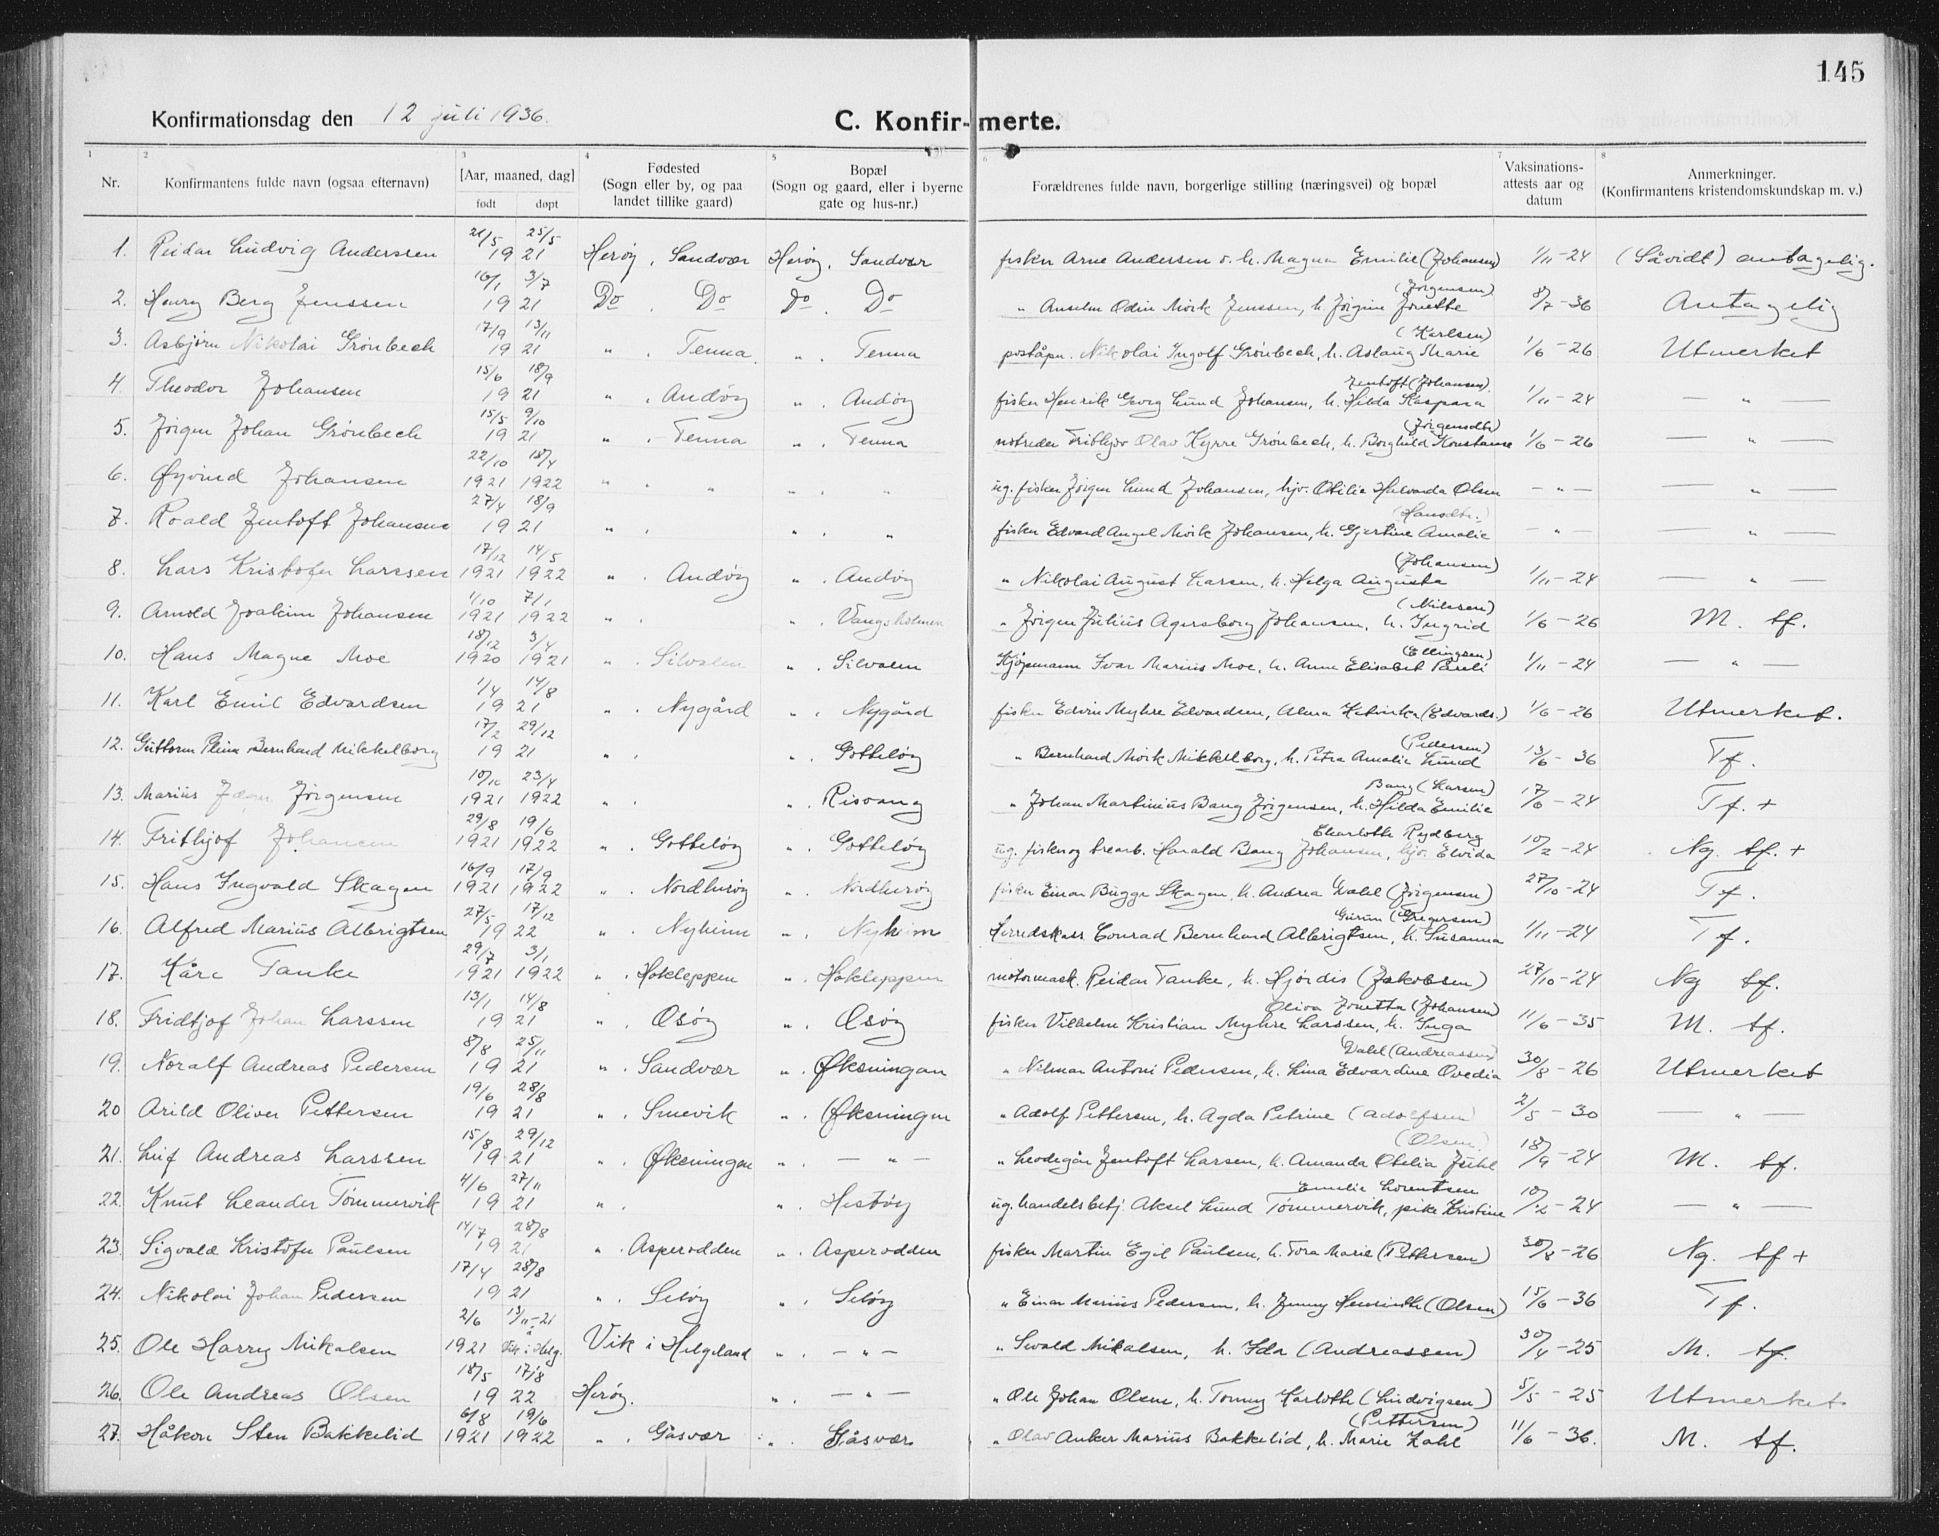 145
Konfirmationsdag den 12 juli 1936.
C. Konfirmerte.
1 2 3 4 5 6 7 8
Nr. Konfirmantens fulde navn (ogsaa efternavn) [Aar, maaned, dag] født døpt Fødested (Sogn eller by, og paa landet tillike gaard) Bopæl (Sogn og gaard, eller i byerne gate og hus-nr.) Forældrenes fulde navn, borgerlige stilling (næringsvei) og bopæl Vaksinations-attests aar og datum Anmerkninger. (Konfirmantens kristendomskundskap m. v.)
1. Reidar Ludvig Anderssen 21/5 25/5 1921 Herøy, Sandvær Herøy, Sandvær fisker Arne Andersen o. h. Magna Emilie (Johansen) 1/11-24 (Såvidt) antagelig.
2. Henry Berg Jenssen 16/1 3/7 1921 Do. Do Do. Do " Anselm Odin Mørk Jenssen, h. Jørgine Jonette (Jørgensen) 8/7-36 Antagelig
3. Asbjørn Nikolai Grønbech 17/9 13/11 1921 " . Tenna " . Tenna poståpn. Nikolai Ingolf Grønbech, h. Aslaug Marie (Karlsen) 1/6-26 Utmerket
4. Theodor Johansen 15/6 18/9 1921 " . Andøy " . Andøy fisker Henrik Georg Lund Johansen, h. Hilda Kaspara Zentoft (Johansen) 1/11-24 — " —
5. Jørgen Johan Grønbech 15/5 9/10 1921 " . Tenna " . Tenna notreder Frithjov Olav Kyrre Grønbech, h. Borghild Konstanse (Jørgensdtr) 1/6-26 — " —
6. Øyvind Johansen 22/10 1921 18/4 1922 " " " " ug. fisker Jørgen Lund Johansen, hjv. Otilie Halvarda Olsen — " — — " —
7. Roald Zentoft Johansen 27/4 18/9 1921 " . " . " fisker Edvard Angel Mørk Johansen, h. Gjertine Amalie (Hansdtr.) — " — — " —
8. Lars Kristofer Larssen 17/12 1921 14/5 1922 " . Andøy " . Andøy " Nikolai August Larsen, h. Helga Augusta (Johansen) 1/11-24 — " —
9. Arnold Joakim Johansen 1/10 1921 7/1 1922 " . " . Vangsholmen " Jørgen Julius Agersborg Johansen, h. Ingrid (Nilssen) 1/6-26 M. tf.
10. Hans Magne Moe 18/12 1920 3/4 1921 " . Silvalen " . Silvalen Kjøpmann Ivar Marius Moe, h. Anna Elisabet Pareli (Ellingsen) 1/11-24 — " —
11. Karl Emil Edvardsen 1/4 14/8 1921 " . Nygård " . Nygård fisker Edvin Myhre Edvardsen, Alma Hedvika (Edvards.) 1/6-26 Utmerket.
12. Guttorm Bernhard Mikkelborg 17/2 29/12 1921 " . " . Gotteløy " Bernhard Mørk Mikkelborg, h. Petra Amalie Lund (Pedersen) 13/6-36 Tf.
13. Marius Jørgensen 10/10 1921 23/4 1922 " . " . Risvang " Johan Martinius Bang Jørgensen, h. Hilda Emilie Bang (Larsen) 17/6-24 Tf. +
14. Frithjof Johansen 29/8 1921 19/6 1922 " . Gotteløy " . Gotteløy ug. fisker og trearb. Harald Bang Johansen, hjv. Elvida Charlotte Rydberg 10/2-24 Ng. tf. +
15. Hans Ingvald Skagen 16/9 1921 17/9 1922 " . Nordherøy " . Nordherøy fisker Einar Bugge Skagen, h. Andrea Dahl (Jørgensen) 27/10-24 Tf.
16. Alfred Marius Albrigtsen 27/5 17/12 1922 " . Nyheim " . Nyheim Herredskass Conrad Bernhard Albrigtsen, h. Susanna Gurun (Gregersen) 1/11-24 Tf.
17. Kåre Tanke 29/7 1921 3/1 1922 " . Hokleppen " . Hokleppen motormask. Reidar Tanke, h. Hjørdis (Jakobsen) 27/10-24 Ng tf.
18. Fridtjof Johan Larssen 13/1 14/8 1921 " . Osøy " . Osøy fisker Vilhelm Kristian Myhre Larssen, h. Inga Oliva Jonetta (Johansen) 11/6-35 M. tf.
19. Noralf Andreas Pedersen 8/8 25/11 1921 " . Sandvær " . Øksningan " Nilmar Antoni Pedersen, h. Lina Edvardine Ovedia Dahl (Andreassen) 30/8-26 Utmerket
20 Arild Oliver Pettersen 19/6 28/8 1921 " . Smevik " . Øksningen " Adolf Pettersen, h. Agda Petrine (Adolfsen) 2/5-30 — " —
21. Leif Andreas Larssen 15/8 29/12 1921 " . Øksningan " . — " — " Leodegår Zentoft Larsen, h. Amanda Otelia Juhl (Olsen) 18/9-24 M. tf.
22. Knut Leander Tømmervik 4/6 27/11 1921 " . " . Hestøy ug. handelsbetj. Aksel Lund Tømmervik, pike Kristine Emelie Lorentsen 10/12-24 — " —
23. Sigvald Kristofer Paulsen 14/7 28/8 1921 " . Asperodden " . Asperodden fisker Martin Egil Paulsen, h. Tora Marie (Pettersen) 30/8-26 Ng. tf +
24. Nikolai Johan Pedersen 17/4 28/8 1921 " . Seløy " . Seløy " Einar Marius Pedersen, h. Jenny Henriette (Olsen) 15/6-36 Tf.
25. Ole Harry Mikalsen 2/6 1921 13/11-21 i Vik i Helg. Vik i Helgeland " . — " — " Sevald Mikalsen, h. Ida (Andreassen) 30/4-25 M. tf.
26. Ole Andreas Olsen 18/5 17/8 1922 Herøy. " . — " — " Ole Johan Olsen, h. Tomny Karlotte (Ludvigsen) 5/5-25 Utmerket
27. Håkon Sten Bakkelid 6/8 1921 19/6 1922 " . Gåsvær " . Gåsvær " Olav Anker Marius Bakkelid, h. Marie Zahl (Pettersen) 11/6-36. M. tf.